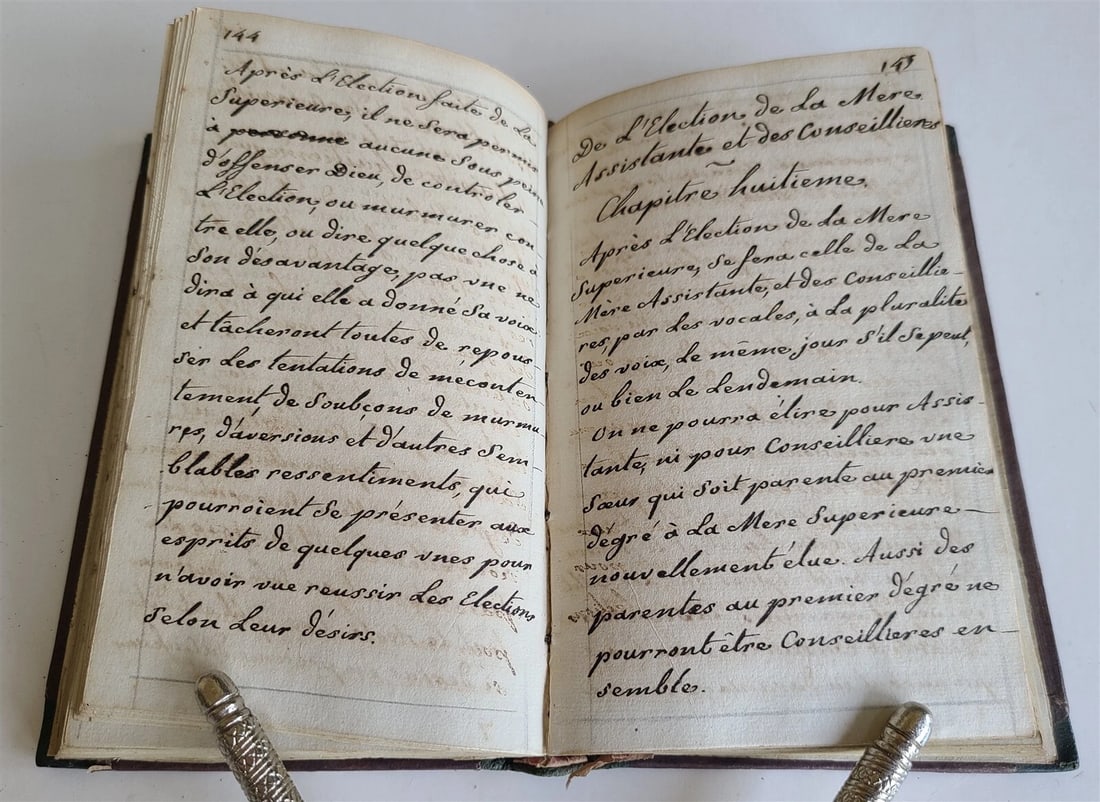 144
Après L'Election faite de La
Superieure, il ne Sera permis
à personne aucune Sous peine
d'offenser Dieu, de controler
L'Election, ou murmurer con
tre elle, ou dire quelque chose à
Son désavantage, pas vne ne
dira à qui elle a donné Sa voix
et tacheront toutes de repous-
ser Les tentations de meconten
tement, de Soubçons de murmu-
res, d'aversions et d'autres Sem-
blables ressentiments, qui
pourroient Se présenter aux
esprits de quelques vnes pour
n'avoir vue reussir Les Elections
Selon Leur désirs.
145
De L'Election de La Mere
Assistante et des Conseillieres
Chapitre huitieme.
Après L'Election de La Mere
Superieure, Se fera celle de La
Mère Assistante, et des Conseillie-
res, par Les vocales, à La pluralité
des voix, Le même jour S'il Se peut,
ou bien Le Lendemain.
On ne pourra élire pour Assis-
tante, ni pour Conseilliere vne
Sœur qui Soit parente au premier
dégré à La Mere Superieure
nouvellement élue. Aussi des
parentes au premier dégré ne
pourront être Conseillieres en-
semble.